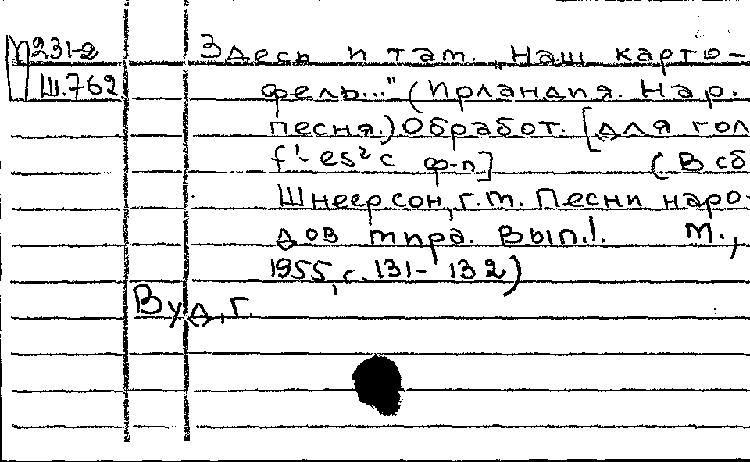 М231-2
Ш.762
Здесь и там. „Наш карто-
фель..." (Ирландия. Нар.
песня.) Обработ. [для гол
f¹-es²c ф-п] (В сб
Шнеерсон, Г.М. Песни наро-
дов мира. Вып.1. М.,
1955, с. 131-132)
Вуд, Г.